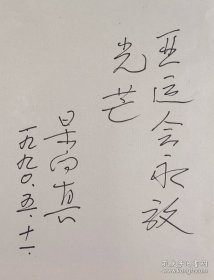 亚运会永放
光芒
一九九〇.五.十一.